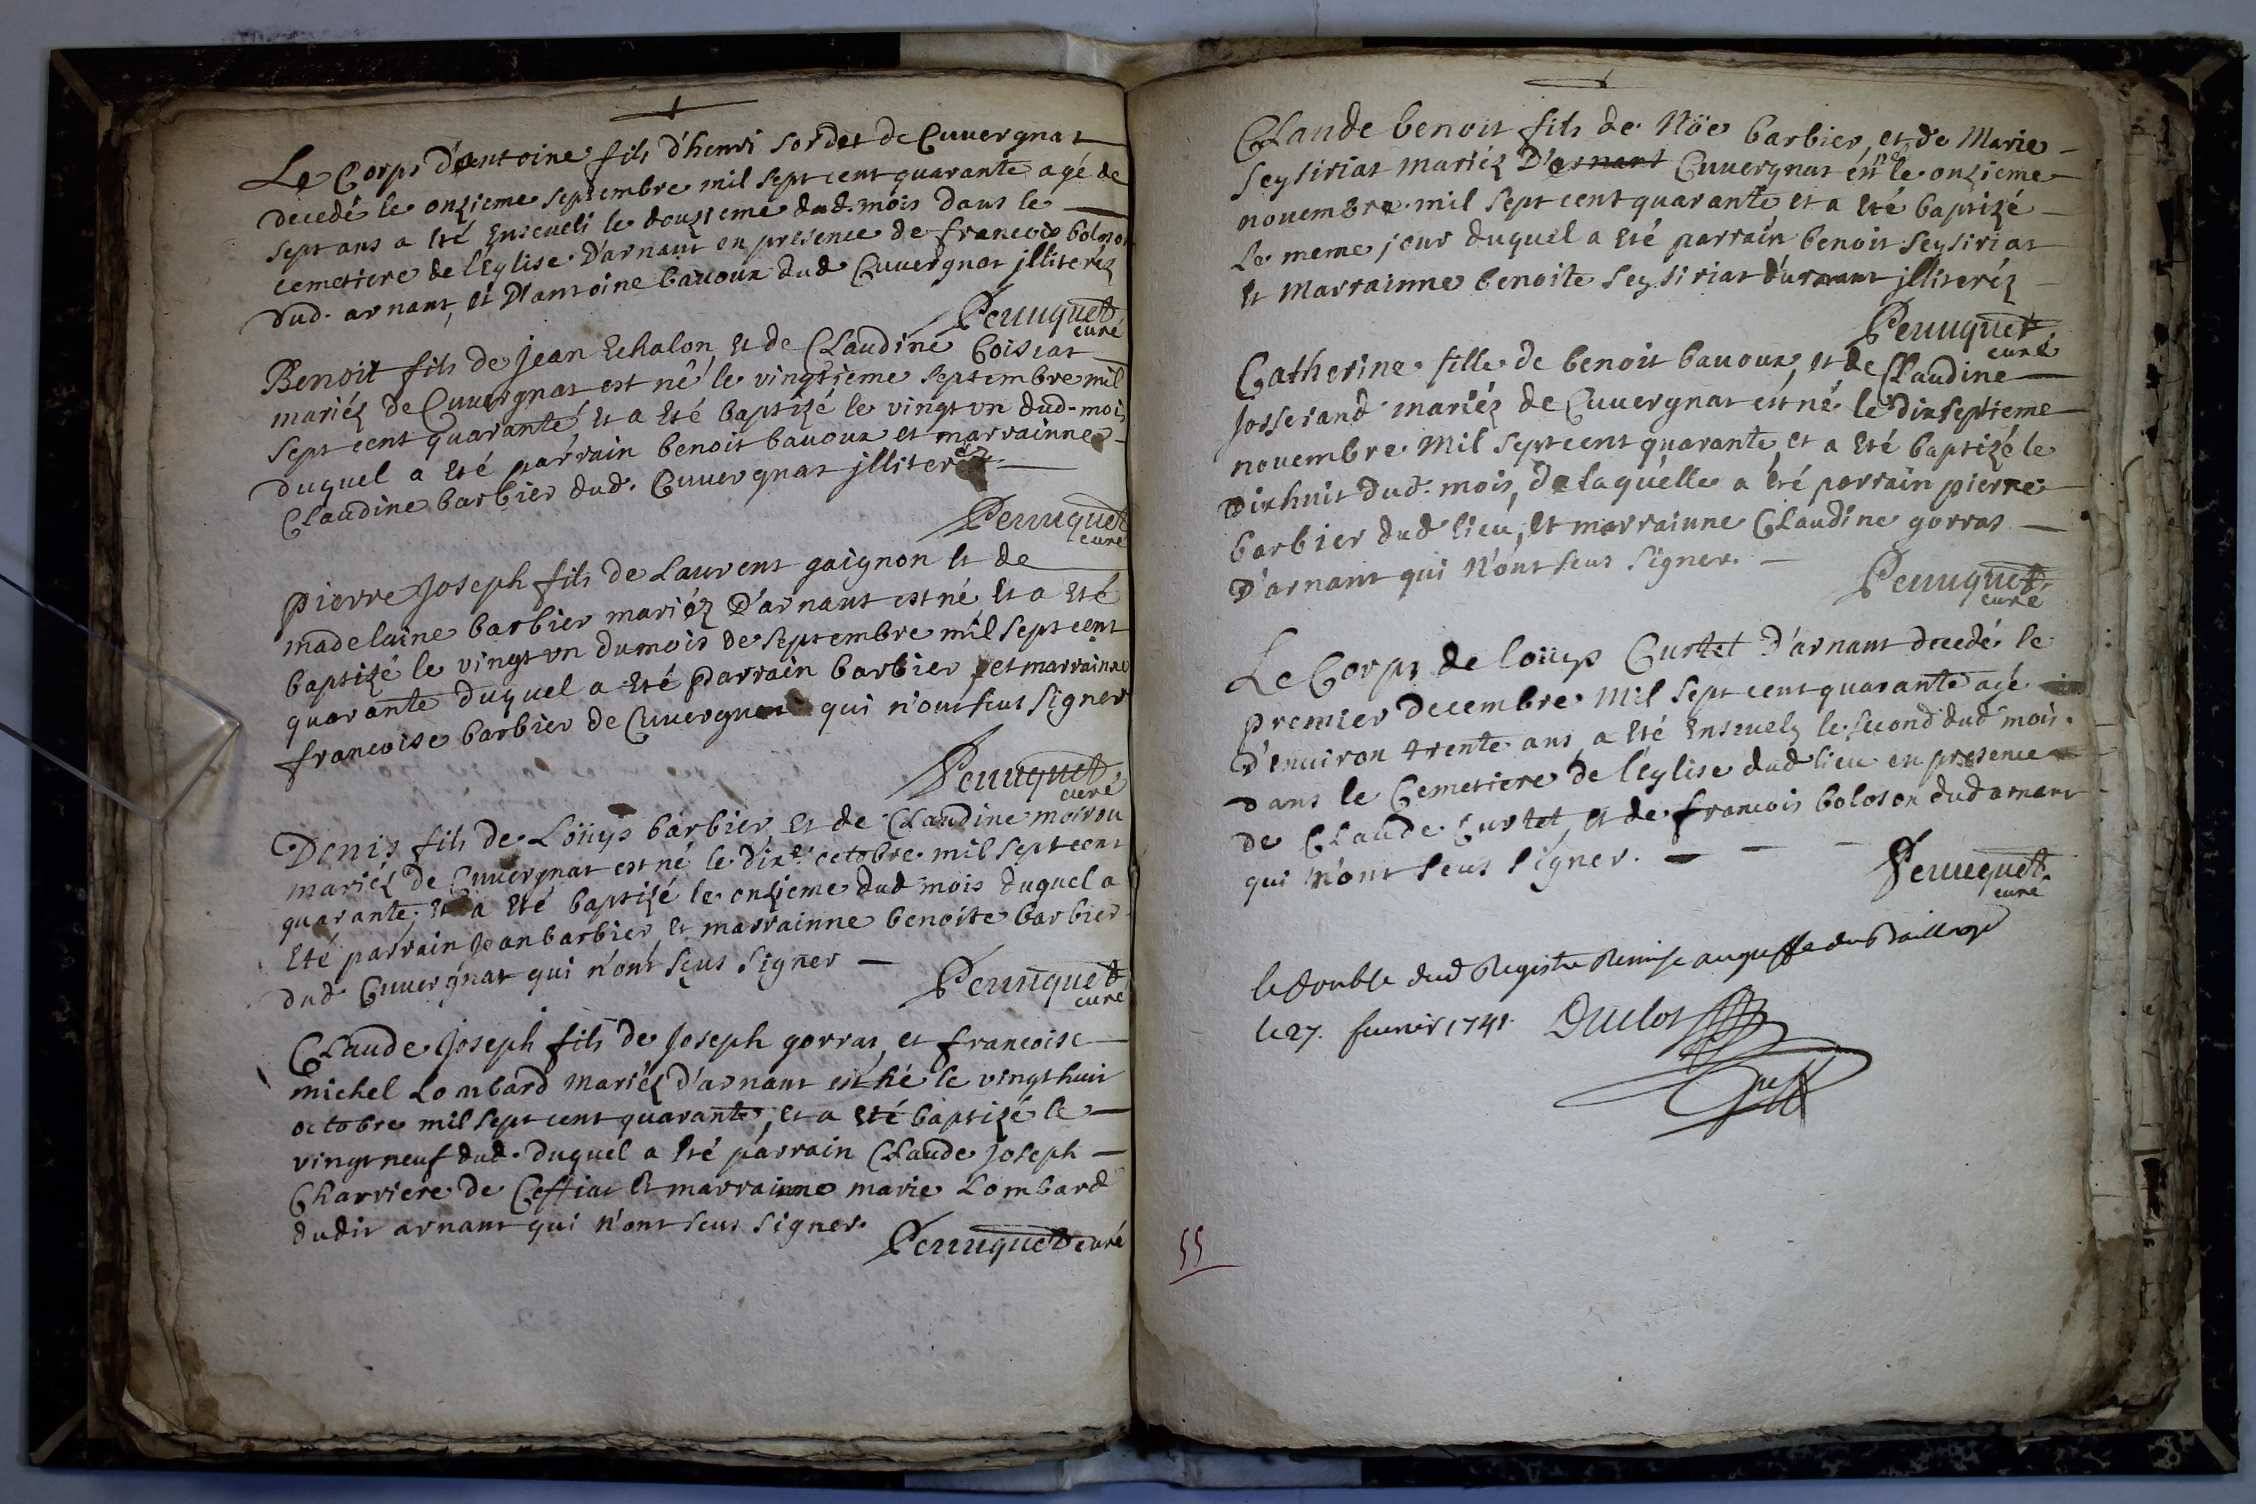 Le Corps d'Antoine fils d'henri sordet de Cuuergnat
decedé le onzieme septembre mil sept cent quarante agé de
sept ans a eté Enseueli le douzieme dud. mois dans le
cemetiere de l'Eglise D'arnant en presence de francois boloson
dud. arnant, et D'antoine bauoux dud Cuuergnat jlliterez
Perruquet
curé
Benoit fils de jean Echalon et de CLaudine Coisiat
mariéz de Cuuergnat est né le vingtieme septembre mil
sept cent quarante et a eté baptizé le vingt vn dud. mois
duquel a eté parrain benoit bauoux et marrainne
CLaudine barbier dud. Cuuergnat jlliteréz
Perruquet
curé
pierre Joseph fils de Laurent gaignon et de
madelaine barbier mariéz D'arnant est né, et a eté
baptizé le vingt vn dumois de septembre mil sept cent
quarante duquel a eté parrain barbier, et marrainne
francoise barbier de Cuuergnat qui n'ont seus signer
Perruquet
curé
Denis fils de Loüys barbier et de CLaudine moirou
mariéz de Cuuergnat est né le dixe octobre mil sept cent
quarante, et a eté baptizé le onzieme dud mois duquel a
eté parrain Jean barbier, et marrainne benoite barbier
dud Cuuergnat qui n'ont seus signer
Perruquet
curé
CLaude Joseph fils de Joseph gorras, et francoise
michel Lombard mariéz d'arnant est né le vingt huit
octobre mil sept cent quarante, et a eté baptizé le
vingt neuf dud. duquel a eté parrain CLaude Joseph
Charriere de Ceffiat et marrainne marie Lombard
dudit arnant qui n'ont seus signer.
Perruquet curé
CLaude benoit fils de Nöe barbier, et de Marie
Seysiriat mariéz D'arnant Cuuergnat est né le onzieme
nouembre mil sept cent quarante et a eté baptizé
le meme jour duquel a eté parrain benoit Seysiriat
et marrainne benoite Seysiriat d'arnant jlliteréz
Perruquet
curé
Catherine fille de benoit bauoux, et de CLaudine
Josserand mariéz de Cuuergnat est né le dixseptieme
nouembre mil sept cent quarante, et a eté baptizé le
Dixhuit dud. mois, de laquelle a eté parrain pierre
barbier dud lieu, et marrainne CLaudine gorras
D'arnant qui n'ont seus signer.
Perruquet
curé
Le Corps de Loüys Curtet D'arnant decedé le
premier decembre mil sept cent quarante agé
d'enuiron trente ans, a eté Enseuely le second dud mois.
dans le Cemetiere de l'Eglise dud lieu en presence
de CLaude Curtet, et de francois boloson dud arnant
qui n'ont seus signer.
Perruquet
curé
le double dud Registre Remise au greffe du Bailliage
le 27. feurier 1741. Duclos
Greff
55